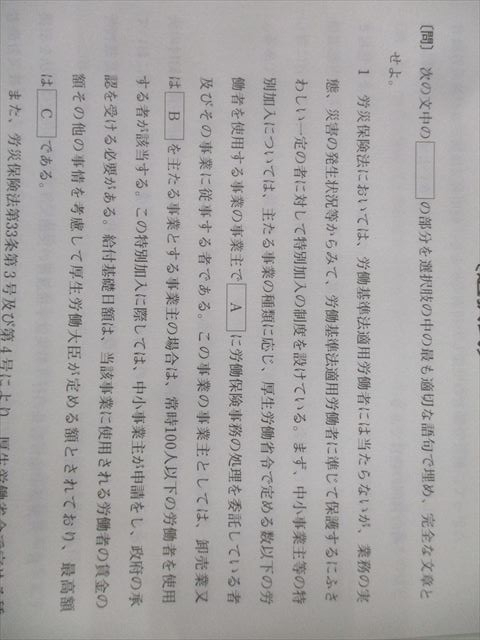 〔問〕 次の文中の の部分を選択肢の中の最も適切な語句で埋め、完全な文章と
せよ。
1 労災保険法においては、労働基準法適用労働者には当たらないが、業務の実
態、災害の発生状況等からみて、労働基準法適用労働者に準じて保護するにふさ
わしい一定の者に対して特別加入の制度を設けている。まず、中小事業主等の特
別加入については、主たる事業の種類に応じ、厚生労働省令で定める数以下の労
働者を使用する事業の事業主で A に労働保険事務の処理を委託している者
及びその事業に従事する者である。この事業の事業主としては、卸売業又
は B を主たる事業とする事業主の場合は、常時100人以下の労働者を使用
する者が該当する。この特別加入に際しては、中小事業主が申請をし、政府の承
認を受ける必要がある。給付基礎日額は、当該事業に使用される労働者の賃金の
額その他の事情を考慮して厚生労働大臣が定める額とされており、最高額
は C である。
また、労災保険法第33条第3号及び第4号により、厚生労働省令で定める種